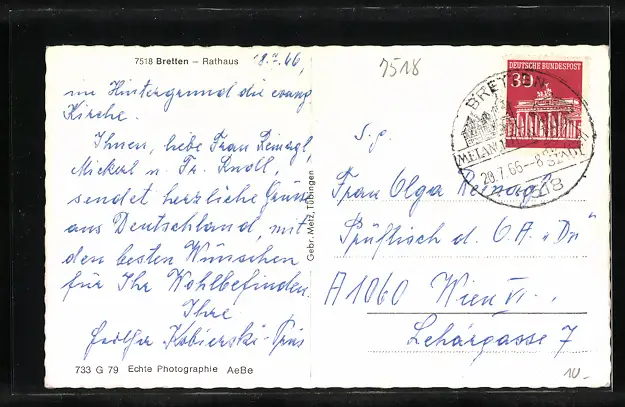 7518 Bretten – Rathaus 18.7.66,
im Hintergrund die evang
Kirche.
Ihnen, liebe Frau Reinagl,
Mickerl u. Fr. Knoll,
sendet herzliche Grüsse
aus Deutschland, mit
den besten Wünschen
für Ihr Wohlbefinden
Ihre
Kobierski
733 G 79 Echte Photographie AeBe
Gebr. Metz, Tübingen
7518
DEUTSCHE BUNDESPOST
30
BRETTEN
STADT
20.7.66--8
7518
S. g.
Frau Olga Reinagl
Prüftisch d. O.A. „Dr"
A 1060 Wien VI.
Lehárgasse 7
10.-